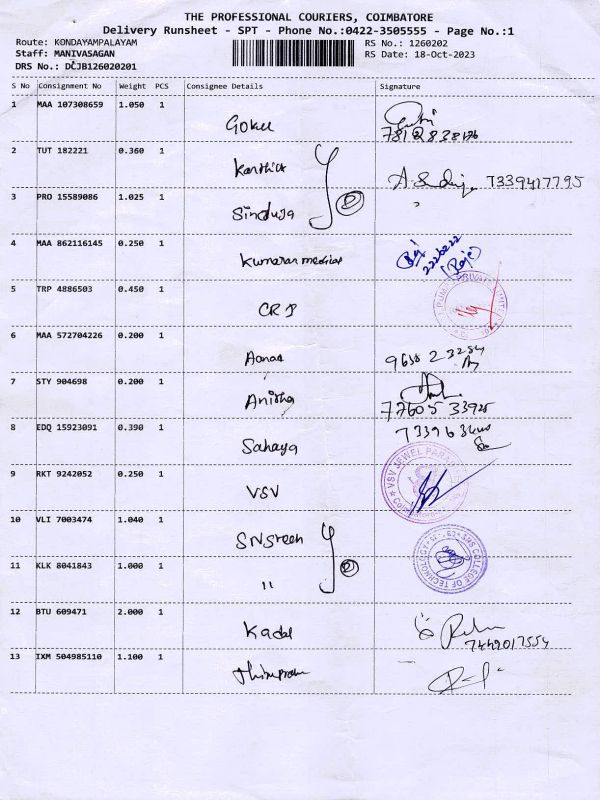 THE PROFESSIONAL COURIERS, COIMBATORE
Delivery Runsheet - SPT - Phone No.:0422-3505555 - Page No.:1
Route: KONDAYAMPALAYAM RS No.: 1260202
Staff: MANIVASAGAN RS Date: 18-Oct-2023
DRS No.: DCJB126020201
S No Consignment No Weight PCS Consignee Details Signature
1 MAA 107308659 1.050 1 Goku
2 TUT 182221 0.360 1 Karthick
A. Sinduja 7339417795
3 PRO 15589086 1.025 1 Sinduja 2
4 MAA 862116145 0.250 1 Kumaran medical
2226222
(Raje)
5 TRP 4886503 0.450 1 CRI
PUMPS PRIVATE LIMITED
6 MAA 572704226 0.200 1
7 STY 904698 0.200 1 Anisha
77605 33925
8 EDQ 15923091 0.390 1 Sahaya
9 RKT 9242052 0.250 1 VSV
VSV JEWEL
10 VLI 7003474 1.040 1
11 KLK 8041843 1.000 1 " 2
SNS COLLEGE OF TECHNOLOGY
12 BTU 609471 2.000 1
7449017554
13 IXM 504985110 1.100 1